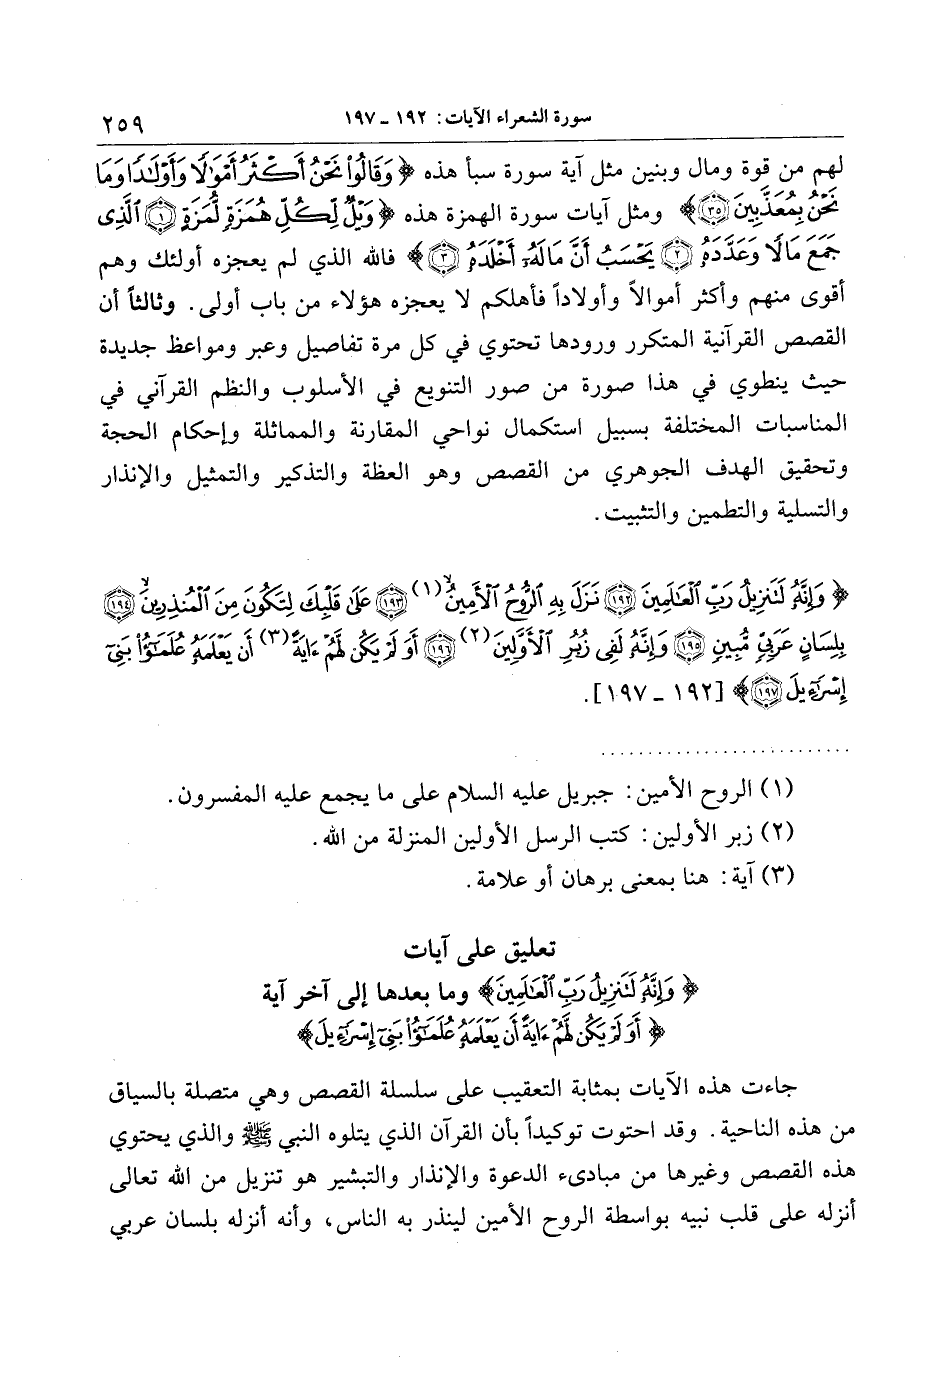 سورة الشعراء الآيات: ١٩٢ ـ ١٩٧ ٢٥٩
لهم من قوة ومال وبنين مثل آية سورة سبأ هذه ﴿وَقَالُوا۟ نَحْنُ أَكْثَرُ أَمْوَٰلًا وَأَوْلَٰدًا وَمَا
نَحْنُ بِمُعَذَّبِينَ ٣٥﴾ ومثل آيات سورة الهمزة هذه ﴿وَيْلٌ لِّكُلِّ هُمَزَةٍ لُّمَزَةٍ ١ ٱلَّذِى
جَمَعَ مَالًا وَعَدَّدَهُۥ ٢ يَحْسَبُ أَنَّ مَالَهُۥٓ أَخْلَدَهُۥ ٣﴾ فالله الذي لم يعجزه أولئك وهم
أقوى منهم وأكثر أموالاً وأولاداً فأهلكم لا يعجزه هؤلاء من باب أولى. وثالثاً أن
القصص القرآنية المتكرر ورودها تحتوي في كل مرة تفاصيل وعبر ومواعظ جديدة
حيث ينطوي في هذا صورة من صور التنويع في الأسلوب والنظم القرآني في
المناسبات المختلفة بسبيل استكمال نواحي المقارنة والمماثلة وإحكام الحجة
وتحقيق الهدف الجوهري من القصص وهو العظة والتذكير والتمثيل والإنذار
والتسلية والتطمين والتثبيت.
﴿وَإِنَّهُۥ لَتَنزِيلُ رَبِّ ٱلْعَٰلَمِينَ ١٩٢ نَزَلَ بِهِ ٱلرُّوحُ ٱلْأَمِينُ (١) ١٩٣ عَلَىٰ قَلْبِكَ لِتَكُونَ مِنَ ٱلْمُنذِرِينَ ١٩٤
بِلِسَانٍ عَرَبِىٍّ مُّبِينٍ ١٩٥ وَإِنَّهُۥ لَفِى زُبُرِ ٱلْأَوَّلِينَ (٢) ١٩٦ أَوَلَمْ يَكُن لَّهُمْ ءَايَةً (٣) أَن يَعْلَمَهُۥ عُلَمَٰٓؤُا۟ بَنِىٓ
إِسْرَٰٓءِيلَ ١٩٧﴾ [١٩٢ ـ ١٩٧].
(١) الروح الأمين: جبريل عليه السلام على ما يجمع عليه المفسرون.
(٢) زبر الأولين: كتب الرسل الأولين المنزلة من الله.
(٣) آية: هنا بمعنى برهان أو علامة.
تعليق على آيات
﴿وَإِنَّهُۥ لَتَنزِيلُ رَبِّ ٱلْعَٰلَمِينَ﴾ وما بعدها إلى آخر آية
﴿أَوَلَمْ يَكُن لَّهُمْ ءَايَةً أَن يَعْلَمَهُۥ عُلَمَٰٓؤُا۟ بَنِىٓ إِسْرَٰٓءِيلَ﴾
جاءت هذه الآيات بمثابة التعقيب على سلسلة القصص وهي متصلة بالسياق
من هذه الناحية. وقد احتوت توكيداً بأن القرآن الذي يتلوه النبي ﷺ والذي يحتوي
هذه القصص وغيرها من مبادىء الدعوة والإنذار والتبشير هو تنزيل من الله تعالى
أنزله على قلب نبيه بواسطة الروح الأمين لينذر به الناس، وأنه أنزله بلسان عربي